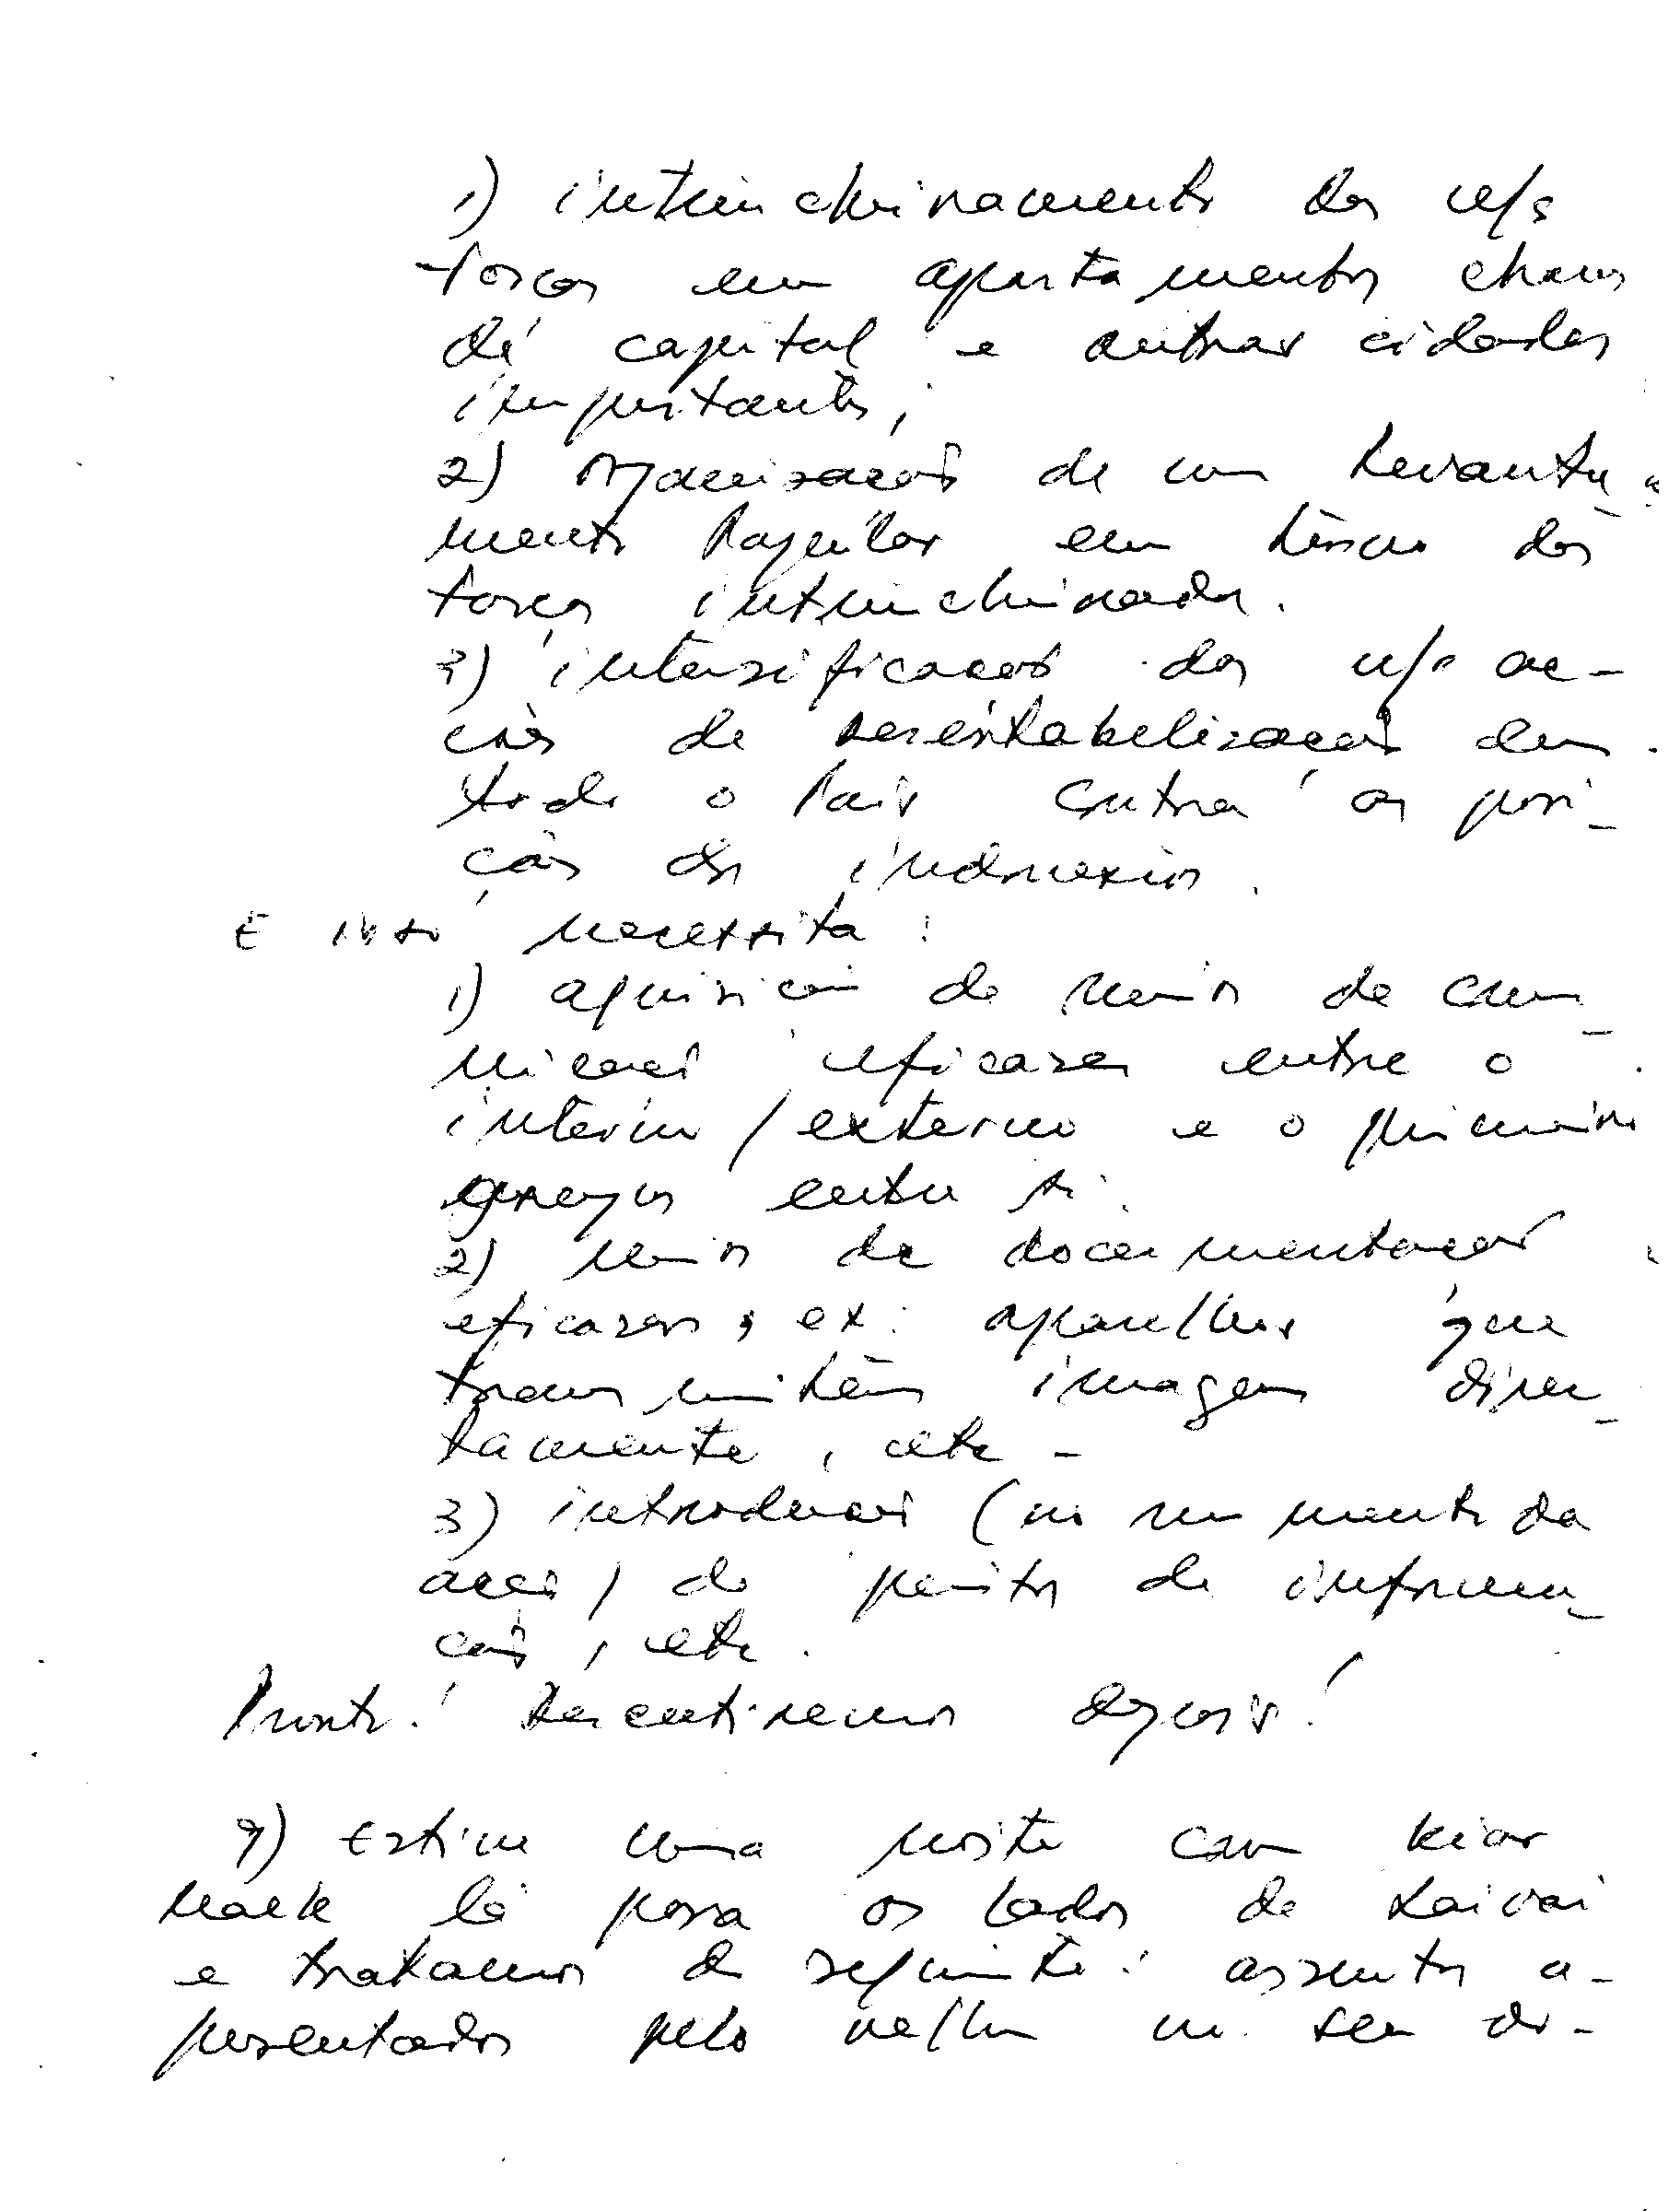 1) intrincheiramento das n/s
forças em apartamentos chaves
da capital e outras cidades
importantes;
2) organização de um levanta-
mento popular em torno das
forças intrincheiradas.
3) intensificação das n/s ac-
ções de desestabelização em
todo o País contra as posi-
ções dos indonésios.
E isso necessita:
1) aquisição de meios de comu-
nicação eficazes entre o
interior/externo e o primeiro
grupos entre si.
2) meios de documentação
eficazes, ex: aparelhos que
transmitem imagens direc-
tamente, etc -
3) introdução (no momento da
acção) de peritos de informa-
ção, etc.
Pronto! Descutiremos depois!
9) Estive uma noite com Kior
lá para os lados de
e tratamos do seguinte: assuntos a-
presentados pelo velho no seu do-